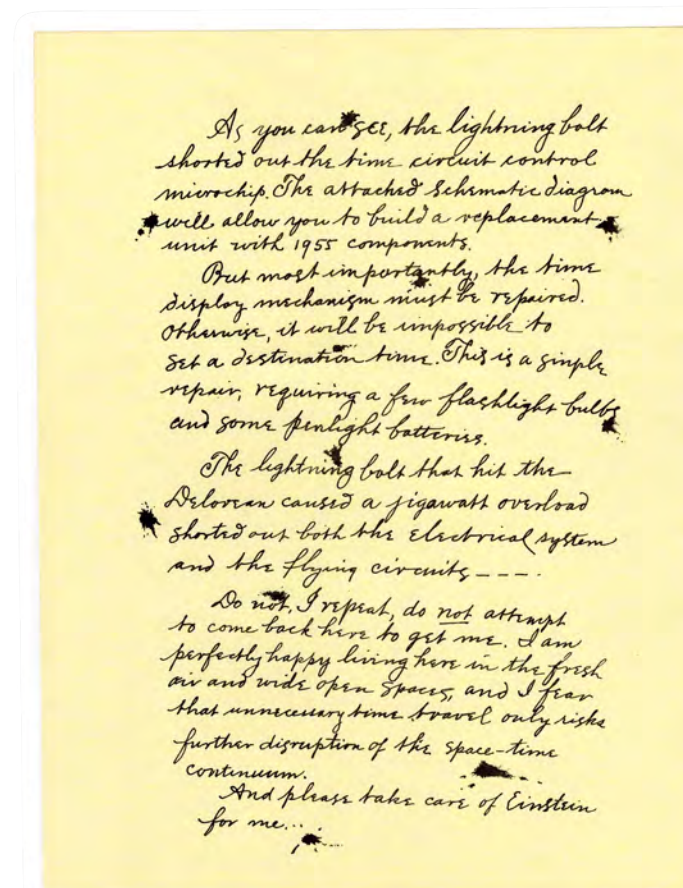 As you can see, the lightning bolt
shorted out the time circuit control
microchip. The attached schematic diagram
will allow you to build a replacement
unit with 1955 components.
But most importantly, the time
display mechanism must be repaired.
Otherwise, it will be impossible to
set a destination time. This is a simple
repair, requiring a few flashlight bulbs
and some penlight batteries.
The lightning bolt that hit the
Delorean caused a jigawatt overload
shorted out both the electrical system
and the flying circuits ----.
Do not, I repeat, do not attempt
to come back here to get me. I am
perfectly happy living here in the fresh
air and wide open spaces, and I fear
that unnecessary time travel only risks
further disruption of the space-time
continuum.
And please take care of Einstein
for me...